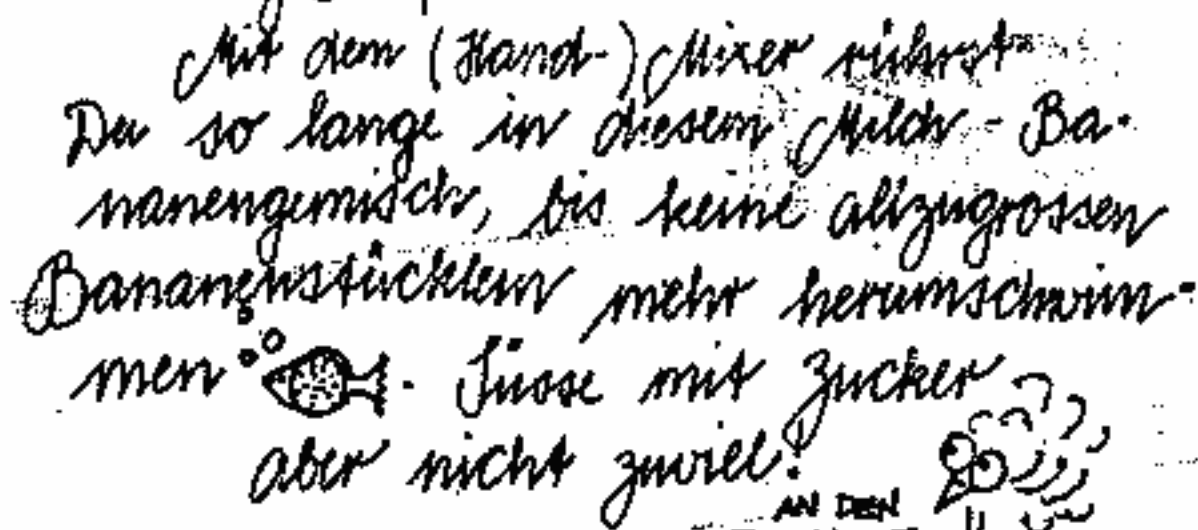 Mit dem (Hand-) Mixer rührst
Du so lange in diesem Milch-Ba-
nanengemisch, bis keine allzugrossen
Bananenstücklein mehr herumschwim-
men. Süsse mit Zucker
aber nicht zuviel!
AN DEN